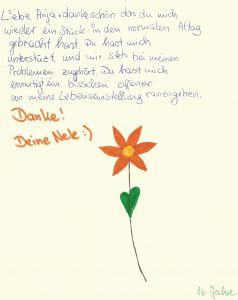 Liebe Anja, dankeschön das du mich
wieder ein Stück in den normalen Altag
gebracht hast. Du hast mich
unterstüzt und mir stets bei meinen
Problemen zugehört. Du hast mich
ermutigt ein bisschen offener
an meine Lebenseinstellung ranengehen.
Danke!
Deine Nele :)
16 Jahre